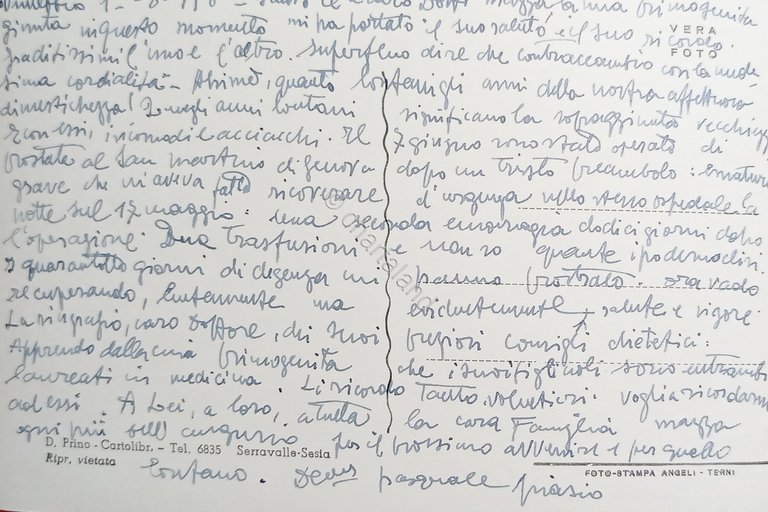 primogenita
giunta in questo momento mi ha portato il suo saluto e il suo ricordo.
graditissimi l'uno e l'altro. Superfluo dire che contraccambio con la mede-
sima cordialità - Ahimè, quanto lontani gli anni della nostra affettuosa
dimestichezza! Quegli anni lontani significano la sopraggiunta vecchiezza
e con essa, incomodi e acciacchi. Il 7 giugno sono stato operato di
prostata al San Martino di Genova dopo un triste preambolo: ematuria
grave che mi aveva fatto ricoverare d'urgenza nello stesso ospedale la
notte sul 17 maggio: una seconda emorragia dodici giorni dopo
l'operazione. Due trasfusioni e non so quante ipodermoclisi.
I quarantotto giorni di degenza mi hanno prostrato. Ora vado
recuperando, lentamente ma evidentemente, salute e vigore.
La ringrazio, caro Dottore, dei suoi consigli dietetici:
Apprendo dalla primogenita che i suoi figlioli sono entrambi
laureati in medicina. Li ricordo tanto volentieri. Voglia ricordarmi
ad essi. A Lei, a loro, a tutta la cara Famiglia Mazza
ogni più bell'augurio per il prossimo avvenire e per quello
lontano. Dev.mo Pasquale
VERA
FOTO
D. Prino - Cartolibr. - Tel. 6835 Serravalle-Sesia
Ripr. vietata
FOTO-STAMPA ANGELI - TERNI